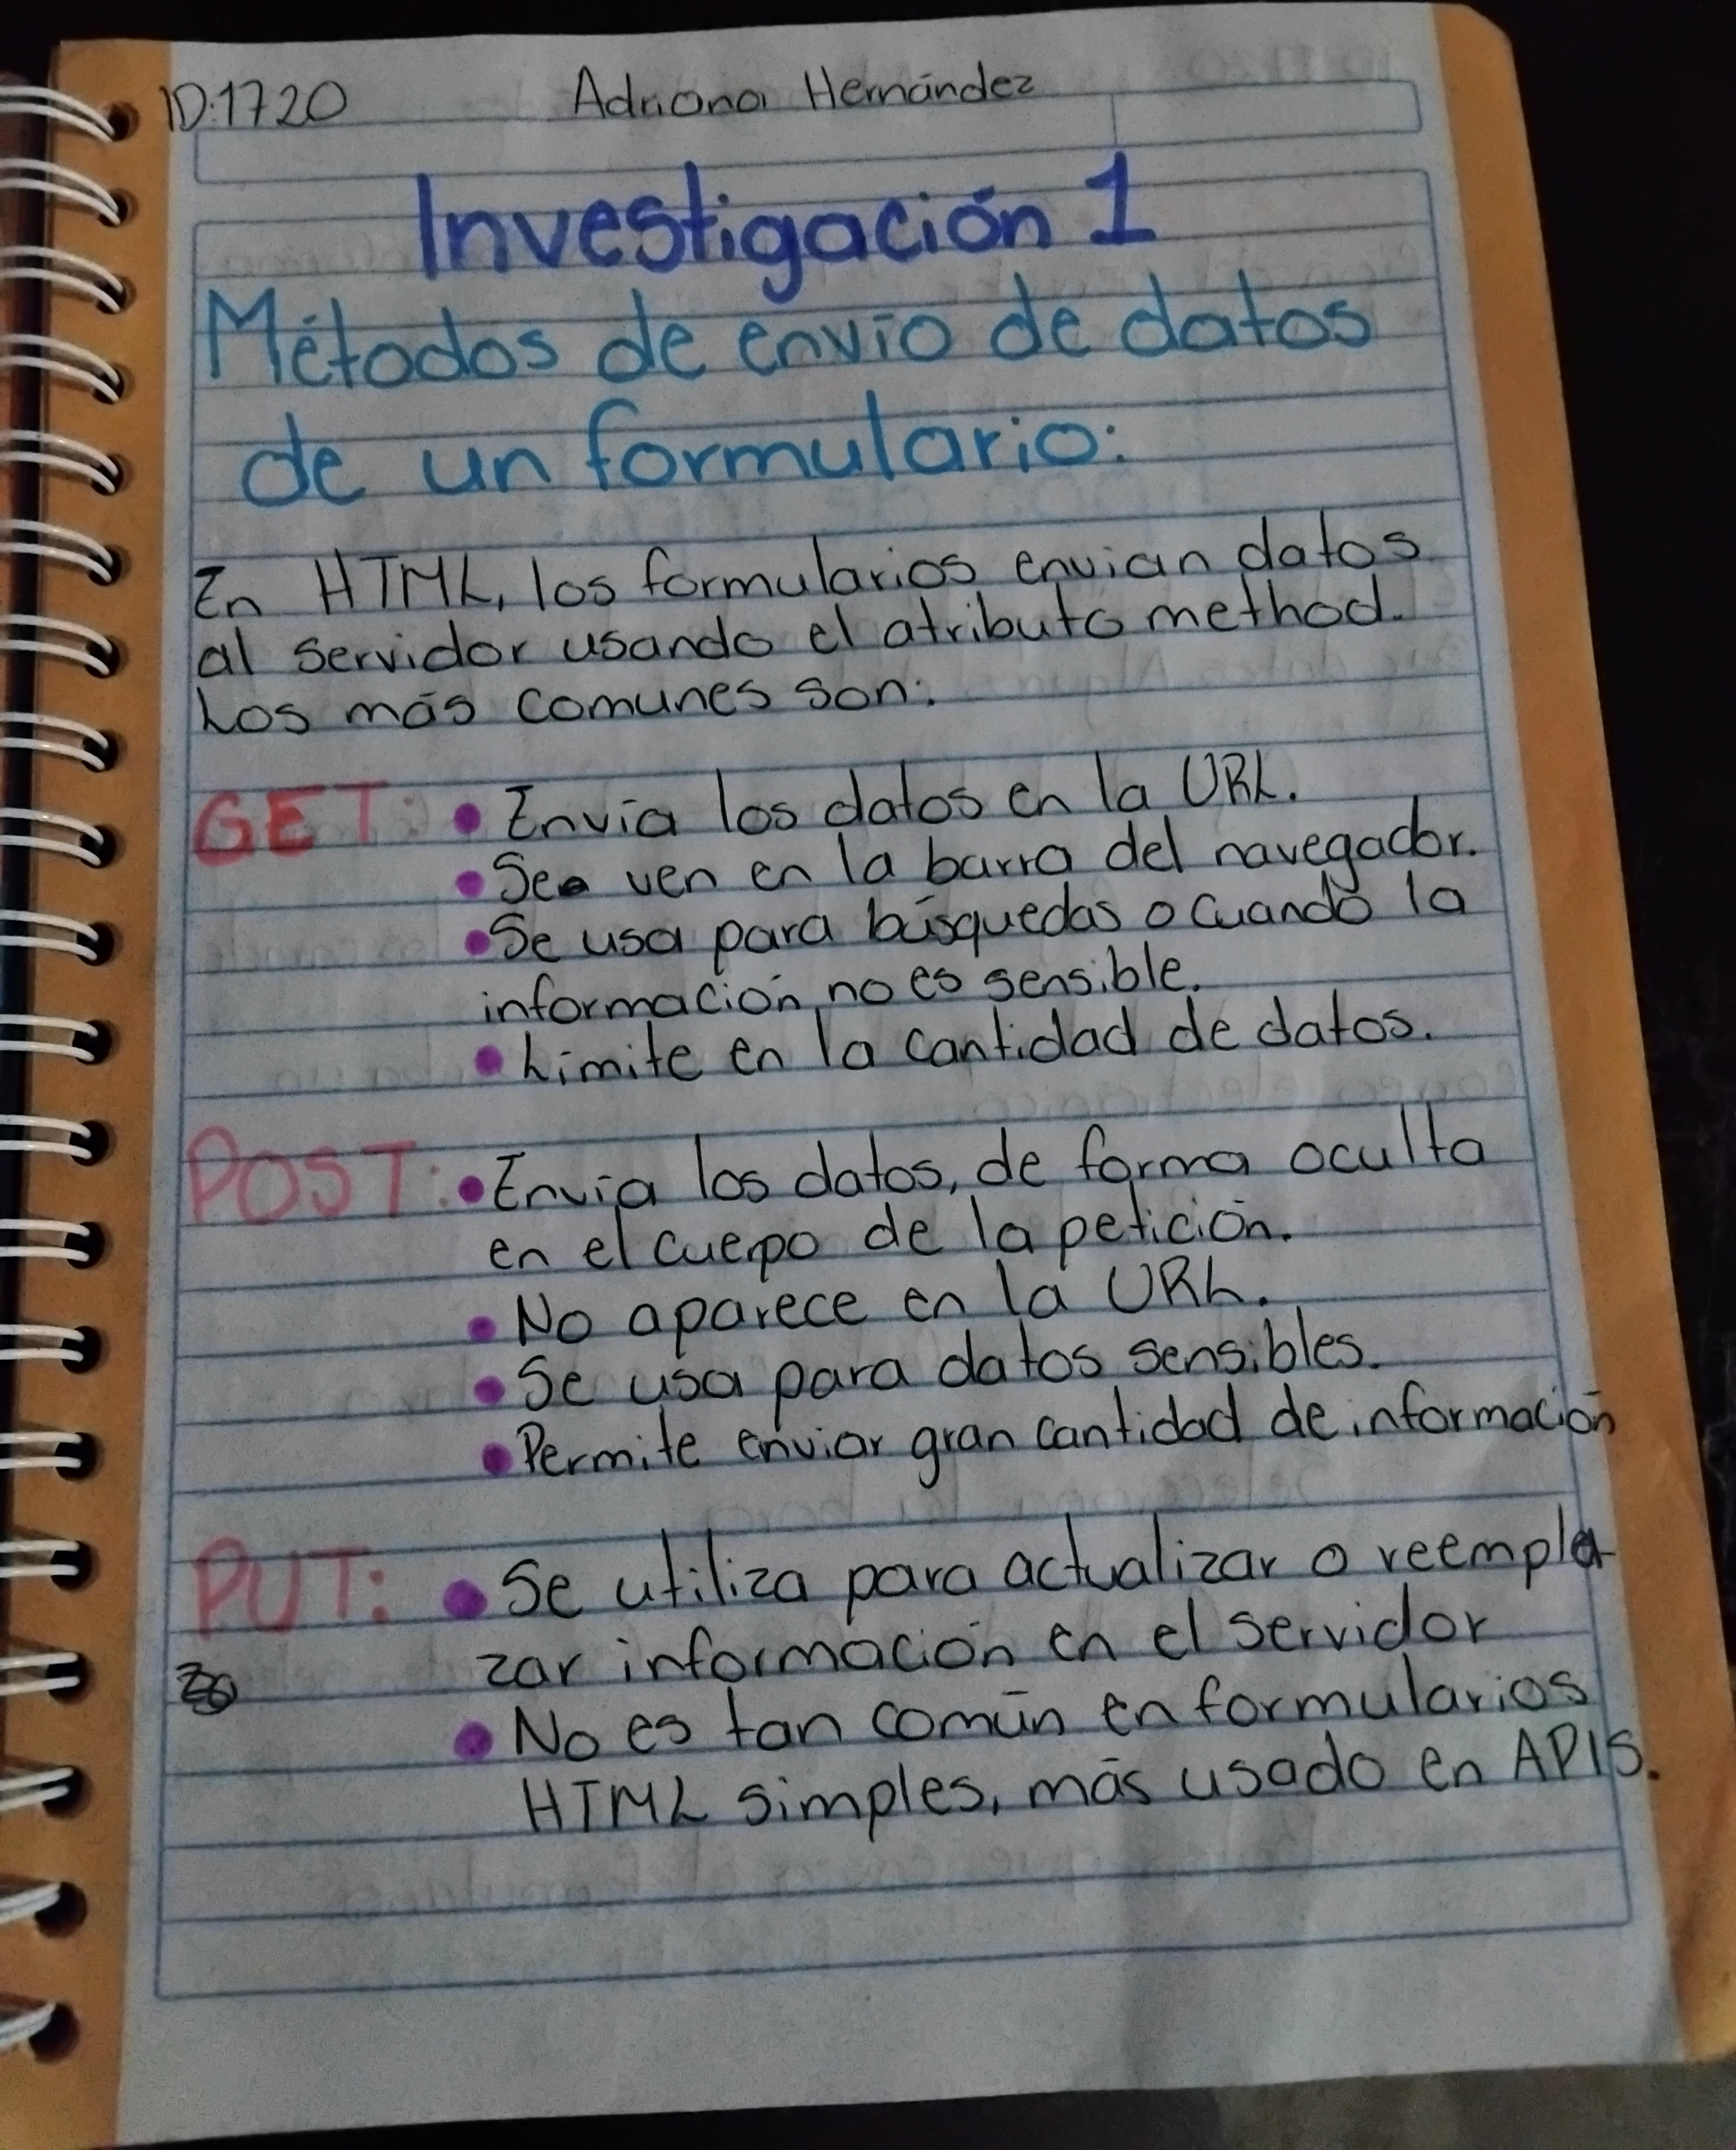 ID:1720 Adriana Hernández
Investigación 1
Métodos de envío de datos
de un formulario:
En HTML, los formularios envían datos
al servidor usando el atributo method.
Los más comunes son:
GET: • Envía los datos en la URL.
• Se ven en la barra del navegador.
• Se usa para búsquedas o cuando la
información no es sensible.
• Límite en la cantidad de datos.
POST: • Envía los datos, de forma oculta
en el cuerpo de la petición.
• No aparece en la URL.
• Se usa para datos sensibles.
• Permite enviar gran cantidad de información
PUT: • Se utiliza para actualizar o reempla
zar información en el servidor
• No es tan común en formularios
HTML simples, más usado en APIS.